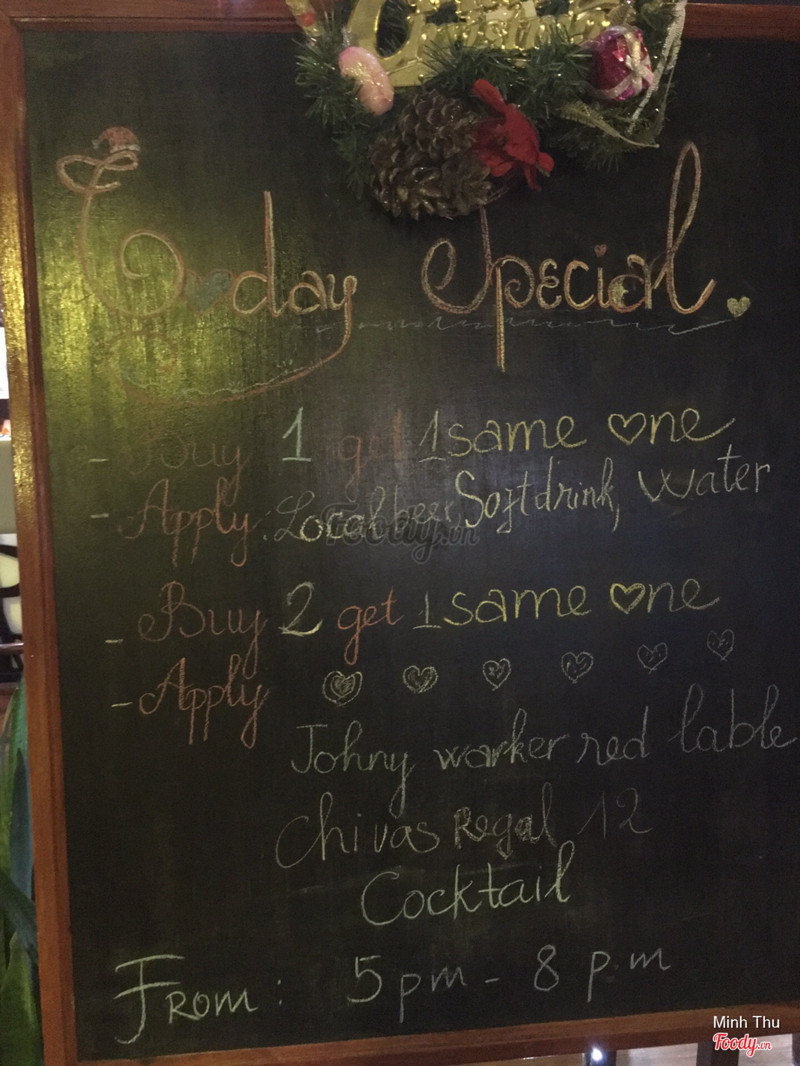 Today Special.
- Buy 1 get 1 same one
- Apply: Local beer, Soft drink, water
Foody.vn
- Buy 2 get 1 same one
- Apply
Johny warker red lable
Chivas Regal 12
Cocktail
From: 5 pm - 8 p.m
Minh Thu
Foody.vn